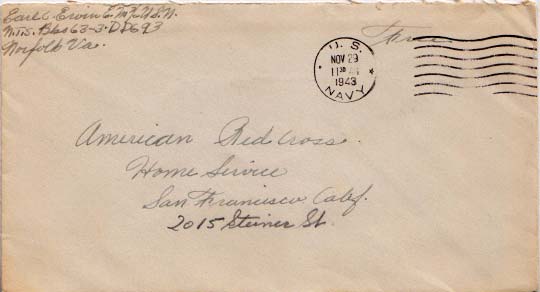 Earl C. Ervin E.M. U.S.N.
N.T.S. Bks 63-3-DD693
Norfolk Va.
Free
U.S.
NOV 29
11 30 AM
1943
NAVY
American Red Cross
Home Service
San Francisco Calif.
2015 Steiner St.